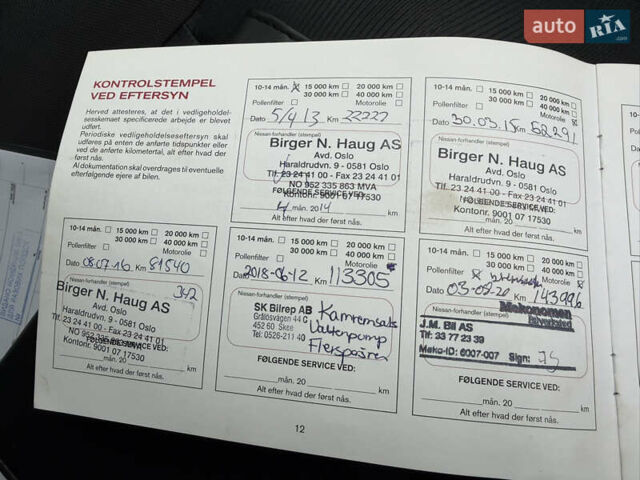 auto RIA .com
KONTROLSTEMPEL
VED EFTERSYN
Herved attesteres, at det i vedligeholdel-
sesskemaet specificerede arbejde er blevet
udført.
Periodiske vedligeholdelseseftersyn skal
udføres på enten de anførte tidspunkter eller
ved de anførte kilometertal, alt efter hvad der
først nås.
Al dokumentation skal overdrages til eventuelle
efterfølgende ejere af bilen.
10-14 mån. 15 000 km 20 000 km
30 000 km 40 000 km
Pollenfilter Motorolie
Dato 5/4 13 Km 22222
Nissan-forhandler (stempel)
Birger N. Haug AS
Avd. Oslo
Haraldrudvn. 9 - 0581 Oslo
Tlf. 23 24 41 00 - Fax 23 24 41 01
NO 952 335 863 MVA
FØLGENDE SERVICE VED:
Kontonr. 9001 07 17530
4 mån. 2014 km
Alt efter hvad der først nås.
10-14 mån. 15 000 km 20 000 km
30 000 km 40 000 km
Pollenfilter Motorolie
Dato 30.03.15 Km 52291
Nissan-forhandler (stempel)
Birger N. Haug AS
Avd. Oslo
Haraldrudvn. 9 - 0581 Oslo
Tlf. 23 24 41 00 - Fax 23 24 41 01
FØLGENDE SERVICE VED:
Kontonr. 9001 07 17530
mån. 20 km
Alt efter hvad der først nås.
10-14 mån. 15 000 km 20 000 km
30 000 km 40 000 km
Pollenfilter Motorolie
Dato 08.07.16 Km 81540
Nissan-forhandler (stempel) 342
Birger N. Haug AS
Avd. Oslo
Haraldrudvn. 9 - 0581 Oslo
Tlf. 23 24 41 00 - Fax 23 24 41 01
FØLGENDE SERVICE VED:
Kontonr. 9001 07 17530
mån. 20 km
Alt efter hvad der først nås.
10-14 mån. 15 000 km 20 000 km
30 000 km 40 000 km
Pollenfilter Motorolie
Dato 2018-06-12 Km 113305
Nissan-forhandler (stempel)
SK Bilrep AB
452 60
Tel. 0526-211 40
Kamremsats
Vattenpump
FØLGENDE SERVICE VED:
mån. 20 km
Alt efter hvad der først nås.
10-14 mån. 15 000 km 20 000 km
30 000 km 40 000 km
Pollenfilter Motorolie
Dato Km 143996
Nissan-forhandler (stempel)
Mekonomen
J.M. Bil AS
Tlf: 33 77 23 39
Meko-ID: 6007-007 Sign:
FØLGENDE SERVICE VED:
mån. 20 km
Alt efter hvad der først nås.
12